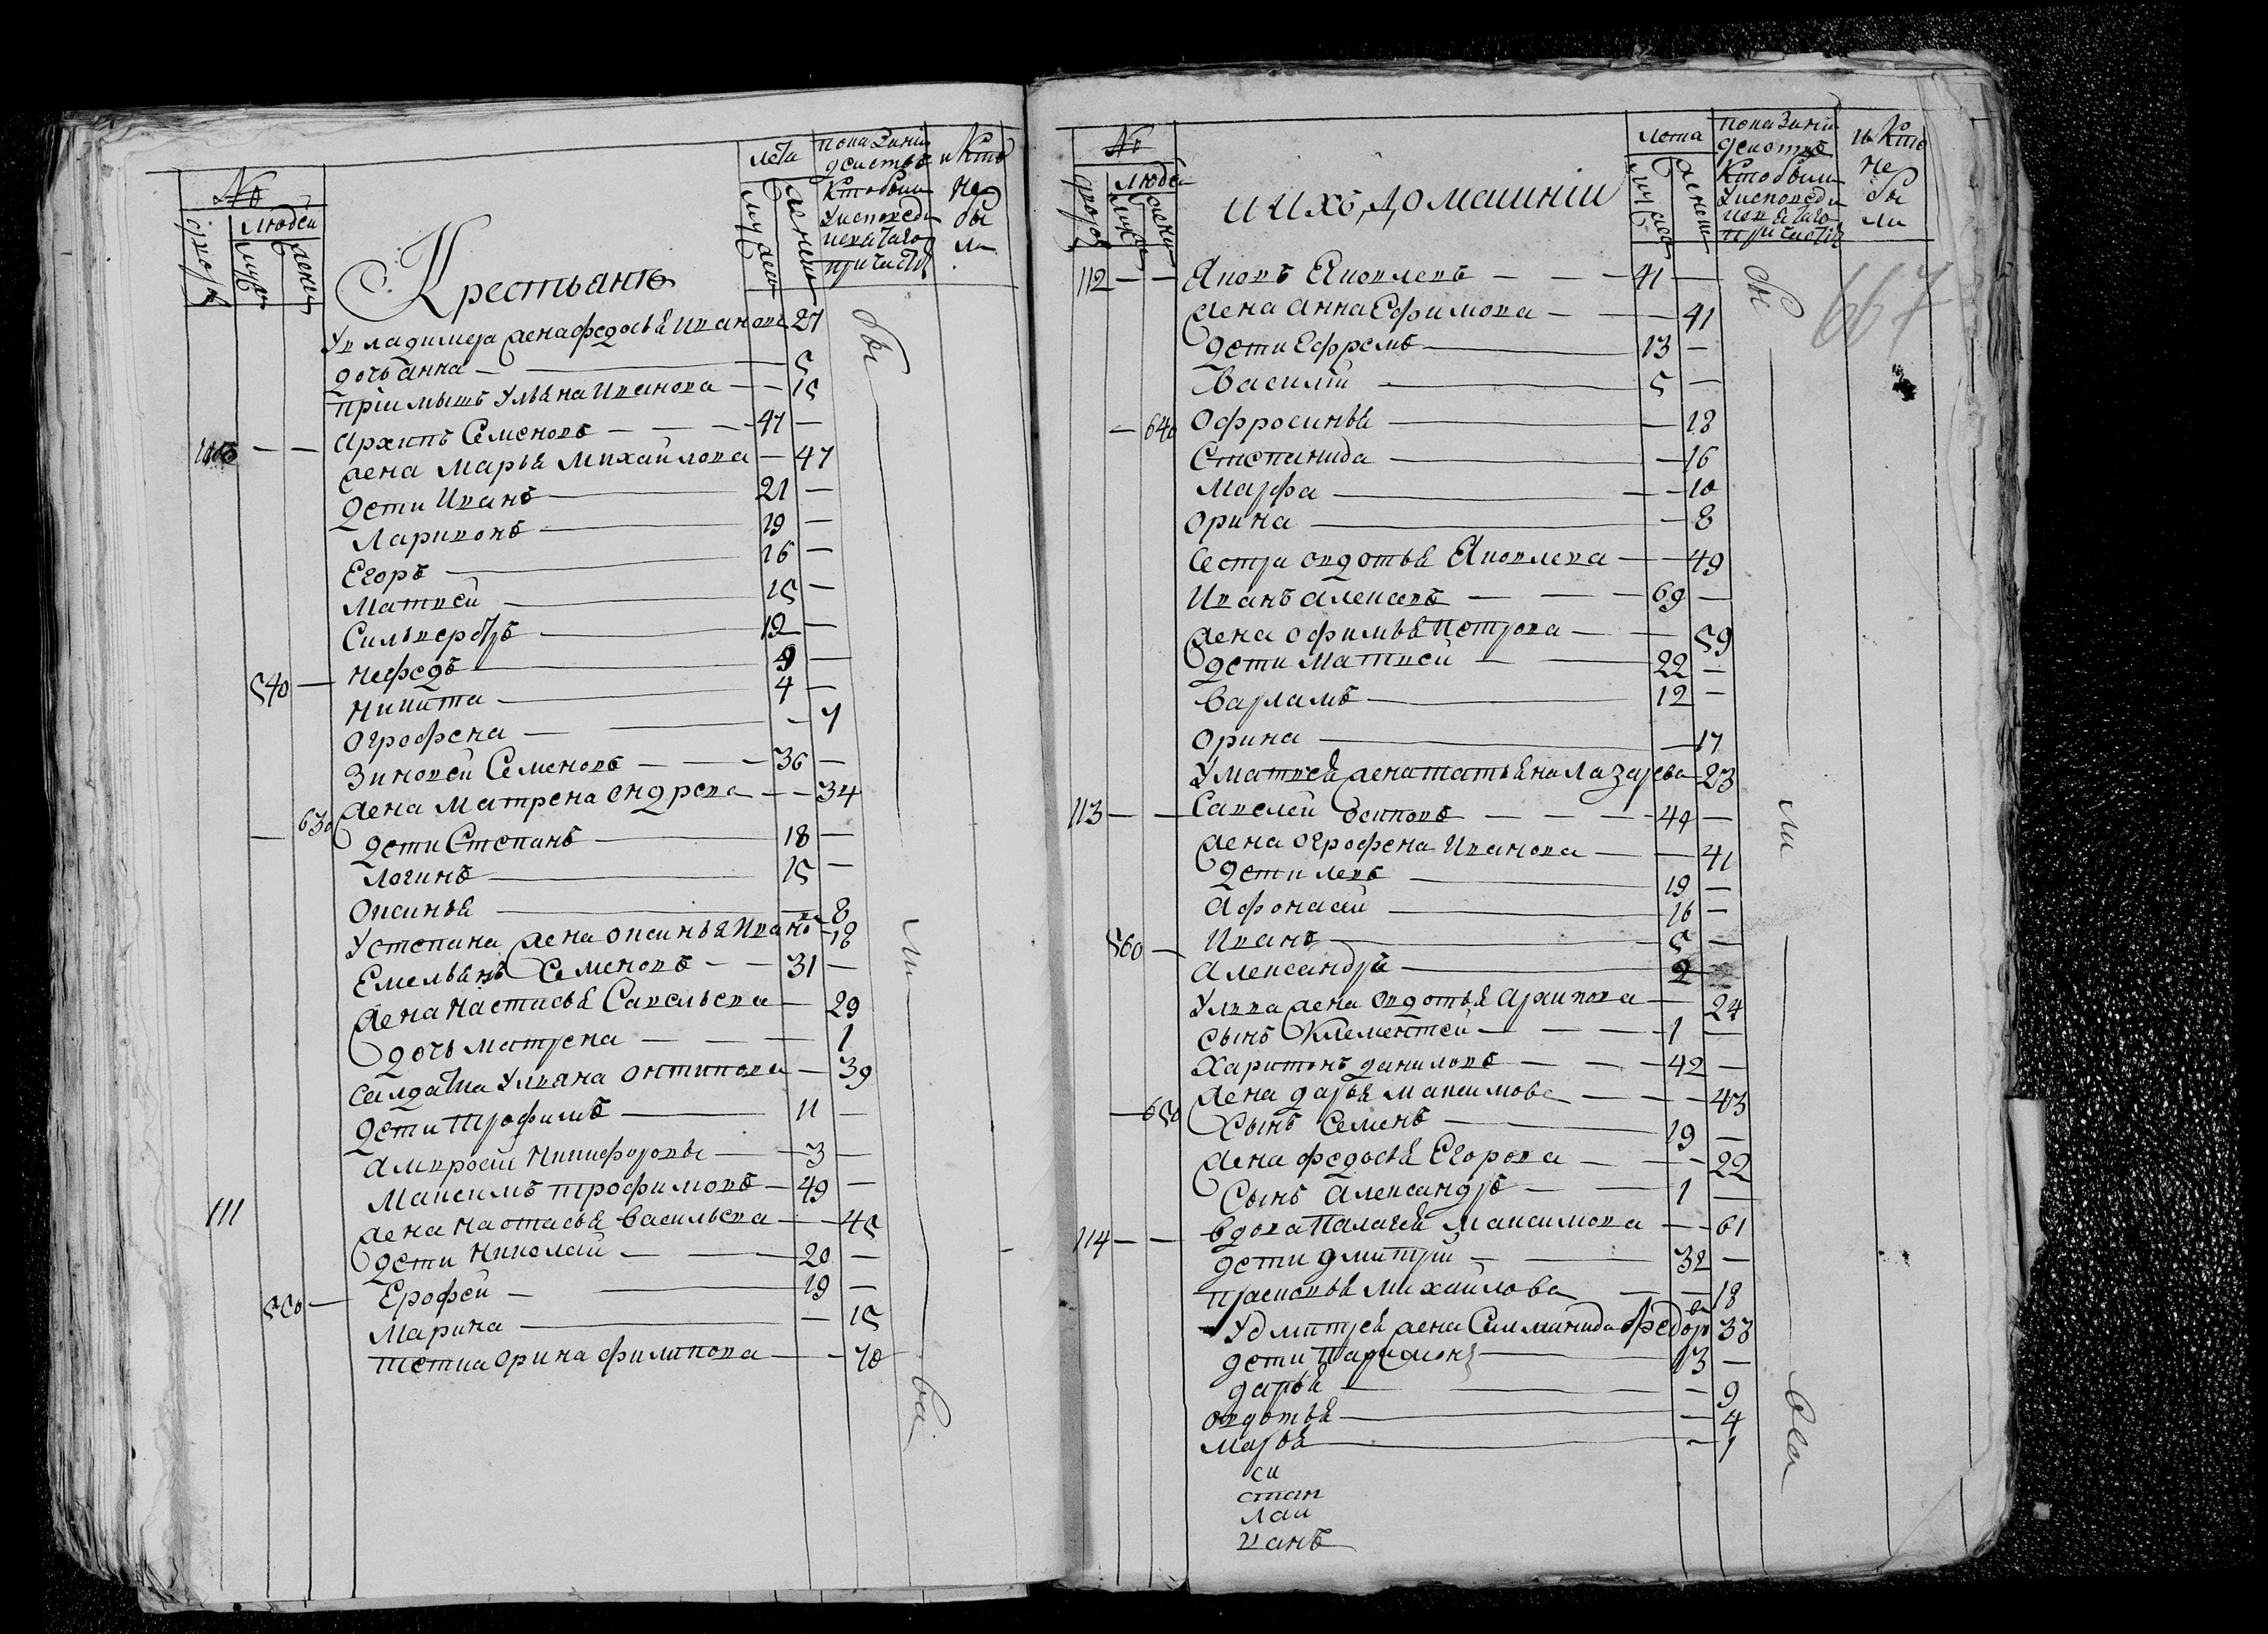 №
дворов
людей
муж
жен
Крестьянѣ
лета
мужеск
женск
показаніи
действо
Кто были
у исповеди
и святаго
причастія
и Кто
не
бы
ли
У владимера жена федосья Иванова 27
дочь анна — 5
пріимышъ Ульяна Иванова — 15
110 — — Архипъ Семеновъ — 47 —
жена Марья Михайлова — 47
дети Иванъ — 21 —
Ларивонъ — 19 —
Егоръ — 16 —
Матвей — 15 —
Сильвестръ — 12 —
540 — Нефедъ — 9 —
Никита — 4 —
Огрофена — 7
Зиновей Семеновъ — 36 —
— 630 жена Матрена Ондрева — 34
дети Степанъ — 18 —
Логинъ — 15 —
Оксинья — 8
У степана жена оксинья Иванова — 18
Емельянъ Семеновъ — 31 —
жена Настасья Савельева — 29
дочь матрена — 1
салдатка Ульяна онтипова — 39
дети Трофимъ — 11 —
Амвросій Никифоровы — 3 —
111 Максимъ трофимовъ — 49 —
жена Настасья Васильева — 45
дети Николай — 20 —
550 — Ерофей — 19 —
Марина — 15
тетка Орина филипова — 70
бы
ли
вси
№
дворов
людей
муж
жен
и ихъ домашніи
лета
мужеск
женск
показаніи
действо
Кто были
у исповеди
и святаго
причастія
и Кто
не
бы
ли
667
112 — — Яковъ Яковлевъ — 41 —
жена Анна Ефимова — 41
дети Ефремъ — 13 —
Василій — 5 —
— 640 Офросинья — 18
Степанида — 16
Марфа — 10
Орина — 8
Сестра овдотья Яковлева — 49
Иванъ алексевъ — 69 —
жена офимья Петрова — 59
дети Матвей — 22 —
Варламъ — 12 —
Орина — 17
У матвея жена татьяна Лазарева — 23
113 — — Савелей Осиповъ — 44 —
жена Огрофена Иванова — 41
дети левъ — 19 —
Афонасій — 16 —
560 — Иванъ — 5 —
Александръ — 2
У лвва жена овдотья Архипова — 24
сынъ Клементей — 1 —
Харитонъ даниловъ — 42 —
— 650 жена дарья максимова — 43
Сынъ Семенъ — 19 —
жена федосья Егорова — 22
Сынъ Александръ — 1 —
114 — — вдова Палагея Максимова — 61
дети дмитрій — 32 —
прасковья михайлова — 18
У дмитрея жена Соломанида федорова 33
дети Парамонъ — 13 —
дарья — 9
овдотья — 4
марья — 1
си
стан
лаи
ванъ
бы
ли
вси